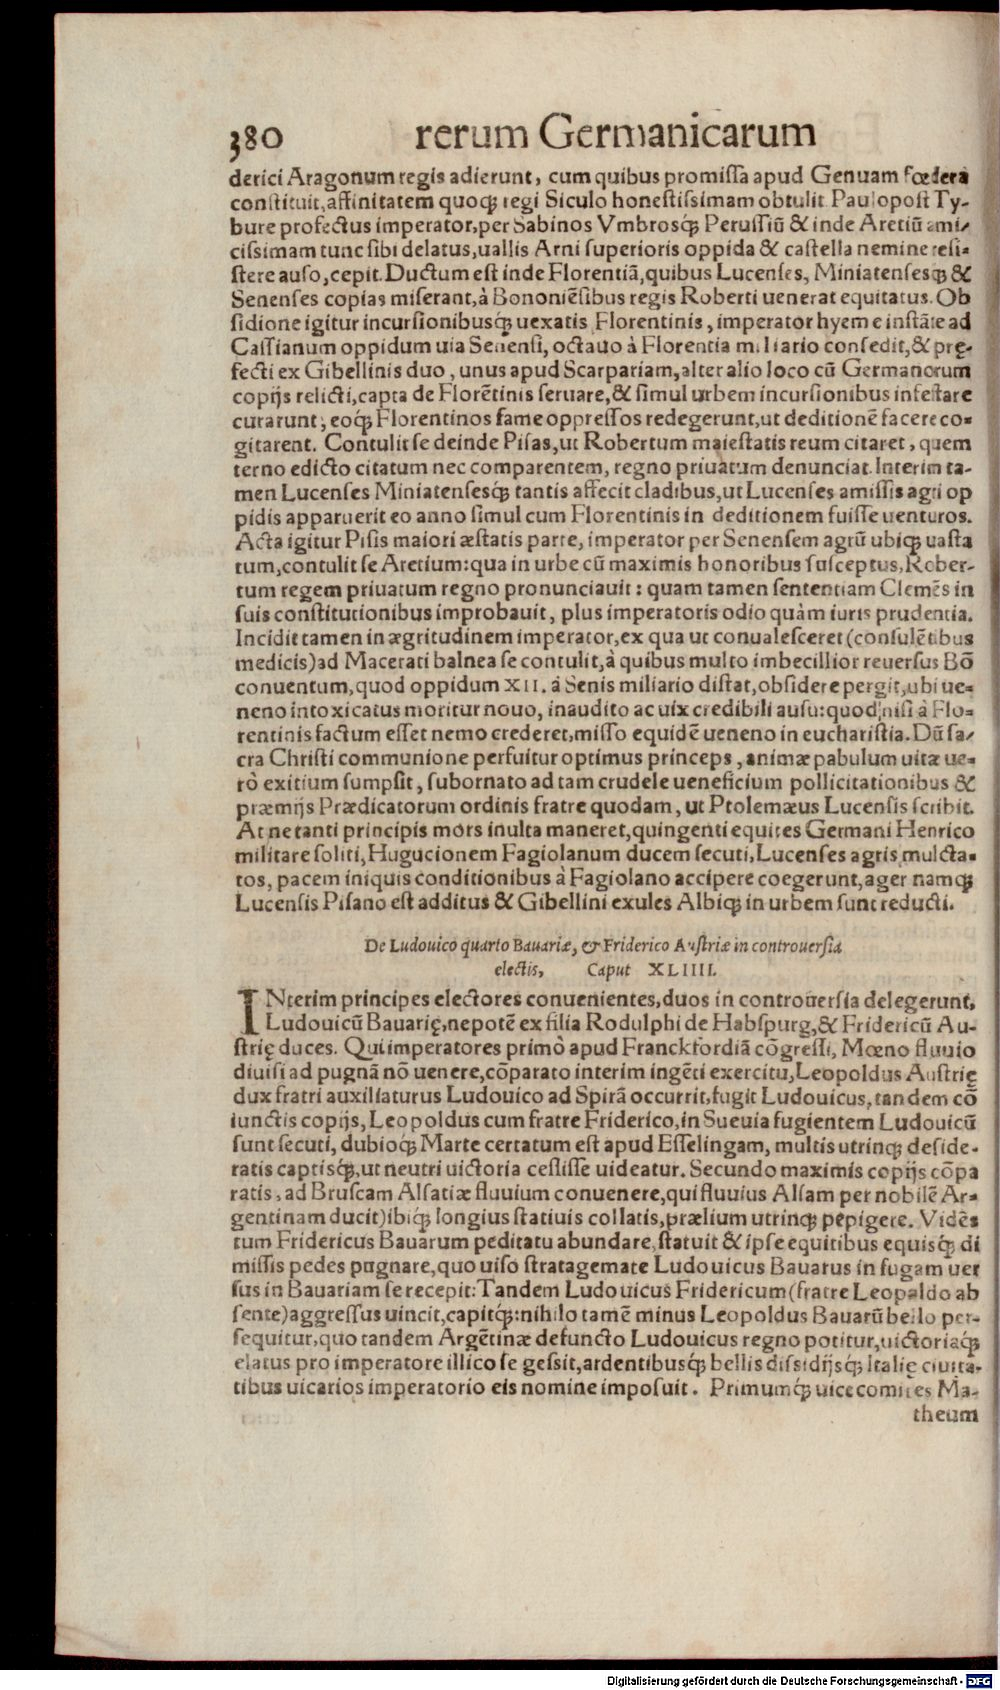 380 rerum Germanicarum
derici Aragonum regis adierunt, cum quibus promissa apud Genuam fœdera
constituit, affinitatem quoq; regi Siculo honestissimam obtulit Paulo post Ty-
bure profectus imperator, per Sabinos Vmbrosq; Perussiũ & inde Aretiũ ami-
cissimam tunc sibi delatus, uallis Arni superioris oppida & castella nemine resi-
stere auso, cepit. Ductum est inde Florentiã, quibus Lucenses, Miniatensesq; &
Senenses copias miserant, à Bononiẽsibus regis Roberti uenerat equitatus. Ob
sidione igitur incursionibusq; uexatis Florentinis, imperator hyeme instãte ad
Cassianum oppidum uia Senensi, octauo à Florentia miliario consedit, & prę-
fecti ex Gibellinis duo, unus apud Scarpariam, alter alio loco cũ Germanorum
copijs relicti, capta de Florẽtinis seruare, & simul urbem incursionibus infestare
curarunt, eoq; Florentinos fame oppressos redegerunt, ut deditionẽ facere co-
gitarent. Contulit se deinde Pisas, ut Robertum maiestatis reum citaret, quem
terno edicto citatum nec comparentem, regno priuatum denunciat. Interim ta-
men Lucenses Miniatensesq; tantis affecit cladibus, ut Lucenses amissis agri op
pidis apparuerit eo anno simul cum Florentinis in deditionem fuisse uenturos.
Acta igitur Pisis maiori æstatis parte, imperator per Senensem agrũ ubiq; uasta
tum, contulit se Aretium: qua in urbe cũ maximis honoribus susceptus, Rober-
tum regem priuatum regno pronunciauit: quam tamen sententiam Clemẽs in
suis constitutionibus improbauit, plus imperatoris odio quàm iuris prudentia.
Incidit tamen in ægritudinem imperator, ex qua ut conualesceret (consulẽtibus
medicis) ad Macerati balnea se contulit, à quibus multo imbecillior reuersus Bõ
conuentum, quod oppidum XII. à Senis miliario distat, obsidere pergit, ubi ue-
neno intoxicatus moritur nouo, inaudito ac uix credibili ausu: quod nisi à Flo-
rentinis factum esset nemo crederet, misso equidẽ ueneno in eucharistia. Dũ sa-
cra Christi communione perfuitur optimus princeps, animæ pabulum uitæ ue-
rò exitium sumpsit, subornato ad tam crudele ueneficium pollicitationibus &
præmijs Prædicatorum ordinis fratre quodam, ut Ptolemæus Lucensis scribit.
At ne tanti principis mors inulta maneret, quingenti equites Germani Henrico
militare soliti, Hugucionem Fagiolanum ducem secuti, Lucenses agris mulcta-
tos, pacem iniquis conditionibus à Fagiolano accipere coegerunt, ager namq;
Lucensis Pisano est additus & Gibellini exules Albiq; in urbem sunt reducti.
De Ludouico quarto Bauariæ, & Friderico Austriæ in controuersia
electis, Caput XLIIII.
INterim principes electores conuenientes, duos in controuersia delegerunt,
Ludouicũ Bauarię, nepotẽ ex filia Rodulphi de Habspurg, & Fridericũ Au-
strię duces. Qui imperatores primò apud Franckfordiã cõgressi, Mœno fluuio
diuisi ad pugnã nõ uenere, cõparato interim ingẽti exercitu, Leopoldus Austrię
dux fratri auxiliaturus Ludouico ad Spirã occurrit, fugit Ludouicus, tandem cõ
iunctis copijs, Leopoldus cum fratre Friderico, in Sueuia fugientem Ludouicũ
sunt secuti, dubioq; Marte certatum est apud Esselingam, multis utrinq; deside-
ratis captisq;, ut neutri uictoria cessisse uideatur. Secundo maximis copijs cõpa
ratis, ad Bruscam Alsatiæ fluuium conuenere, qui fluuius Alsam per nobilẽ Ar-
gentinam ducit) ibiq; longius statiuis collatis, prælium utrinq; pepigere. Vidẽs
tum Fridericus Bauarum peditatu abundare, statuit & ipse equitibus equisq; di
missis pedes pugnare, quo uiso stratagemate Ludouicus Bauarus in fugam uer
sus in Bauariam se recepit: Tandem Ludouicus Fridericum (fratre Leopaldo ab
sente) aggressus uincit, capitq;: nihilo tamẽ minus Leopoldus Bauarũ bello per-
sequitur, quo tandem Argẽtinæ defuncto Ludouicus regno potitur, uictoriaq;
elatus pro imperatore illico se gessit, ardentibusq; bellis dissidijsq; Italię ciuita-
tibus uicarios imperatorio eis nomine imposuit. Primumq; uicecomites Ma-
theum
Digitalisierung gefördert durch die Deutsche Forschungsgemeinschaft - DFG